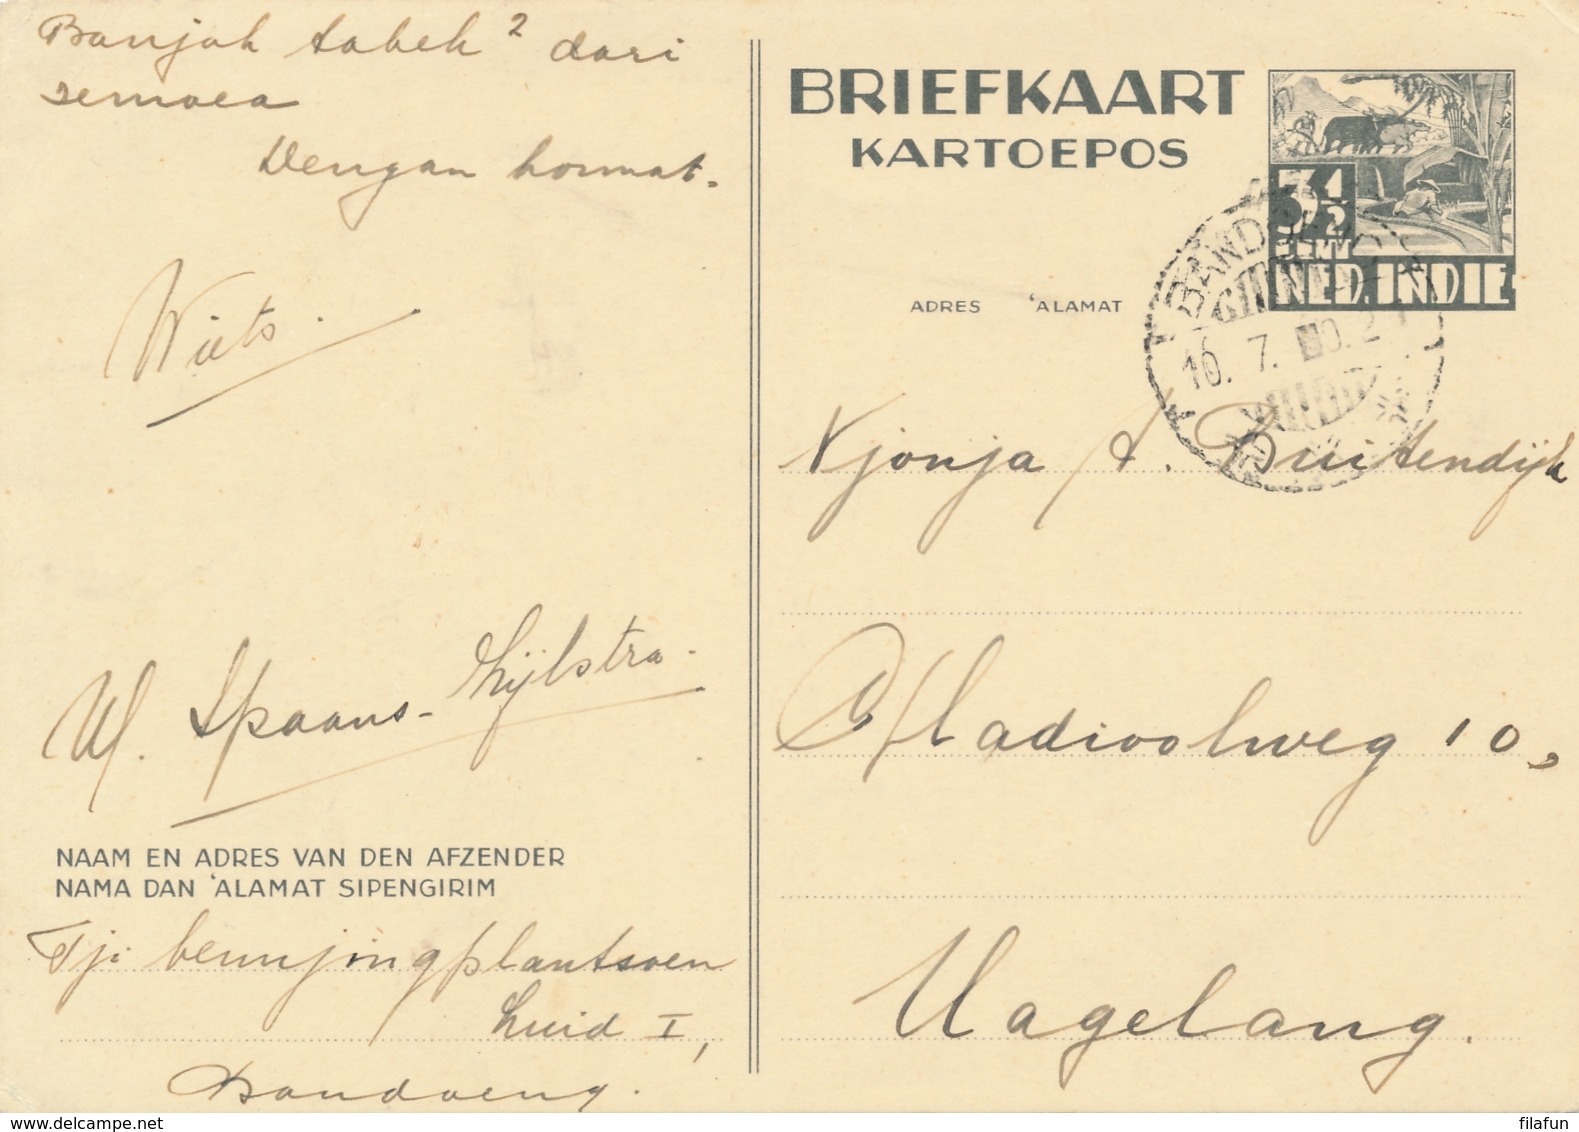 Banjak tabeh ² dari
semoea
Dengan hormat.
Wiets.
W. Spaans-Zijlstra.
NAAM EN ADRES VAN DEN AFZENDER
NAMA DAN 'ALAMAT SIPENGIRIM
Tji beunjingplantsoen
Zuid I,
Bandoeng.
BRIEFKAART
KARTOEPOS
3 1/2
CENT
NED. INDIE
ADRES 'ALAMAT
BANDOENG
16. 7. 0.2
Njonja A. Buitendijk
Gladioolweg 10,
Magelang.
www.delcampe.net
filafun